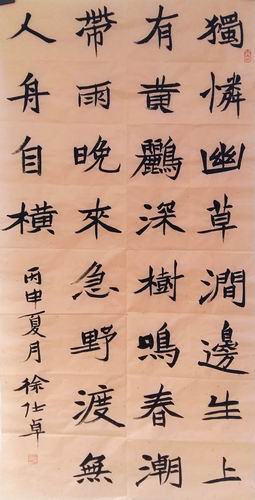 獨憐幽草澗邊生上
有黄鸝深樹鳴春潮
帶雨晚來急野渡無
人舟自橫
丙申夏月徐仕卓